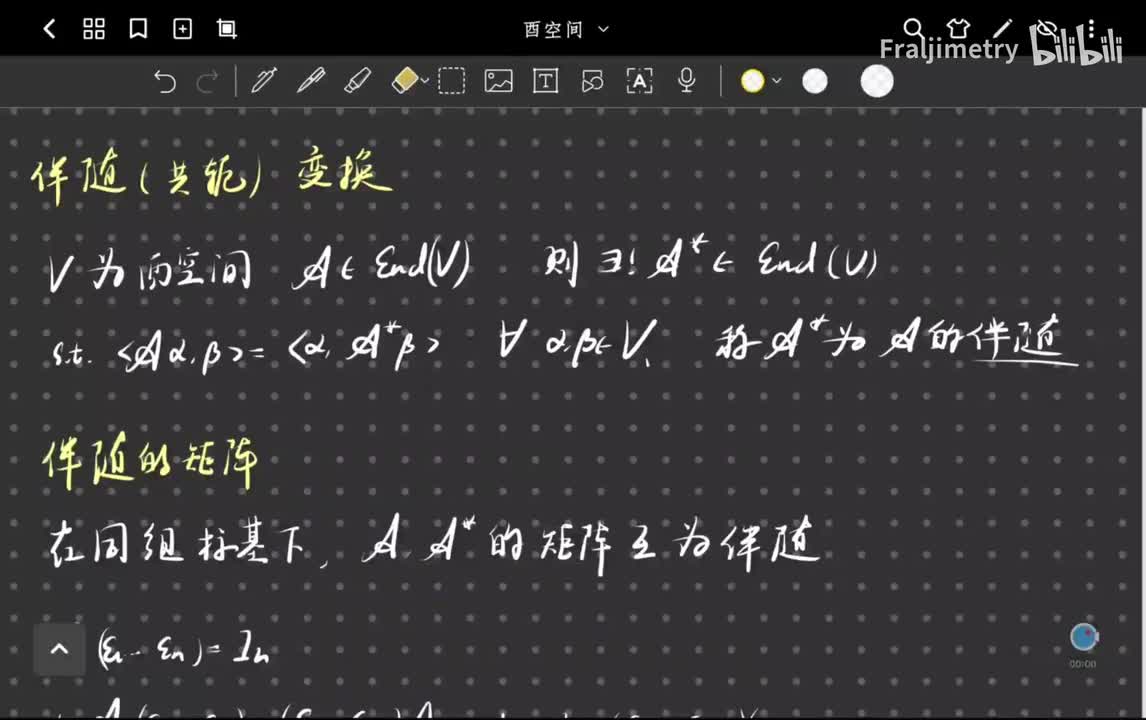 酉空间
Fraljimetry bilibili
伴随(共轭) 变换
V 为酉空间 𝒜 ∈ End(V) 则 ∃! 𝒜* ∈ End(V)
s.t. <𝒜α, β> = <α, 𝒜*β> ∀ α, β ∈ V, 称 𝒜* 为 𝒜 的伴随
伴随的矩阵
在同组标基下, 𝒜 𝒜* 的矩阵互为伴随
00:00
(ε₁ … εₙ) = Iₙ